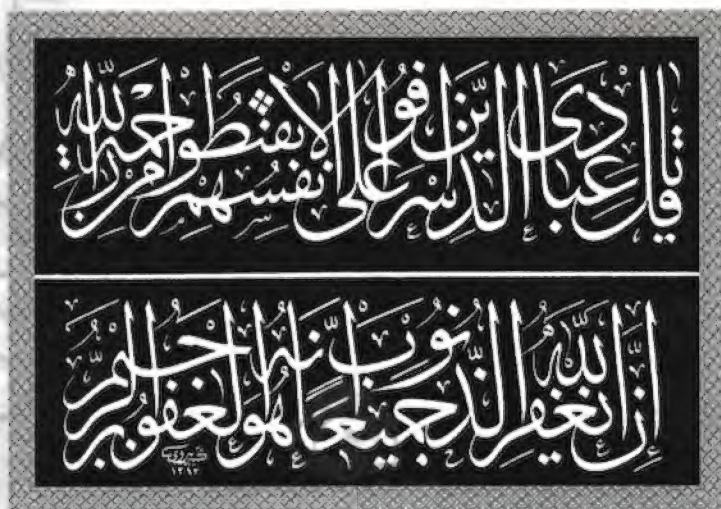 قل يا عبادى الذين اسرفوا على انفسهم لا تقنطوا من رحمة الله
إن الله يغفر الذنوب جميعًا انه هو الغفور الرحيم
١٣١٣